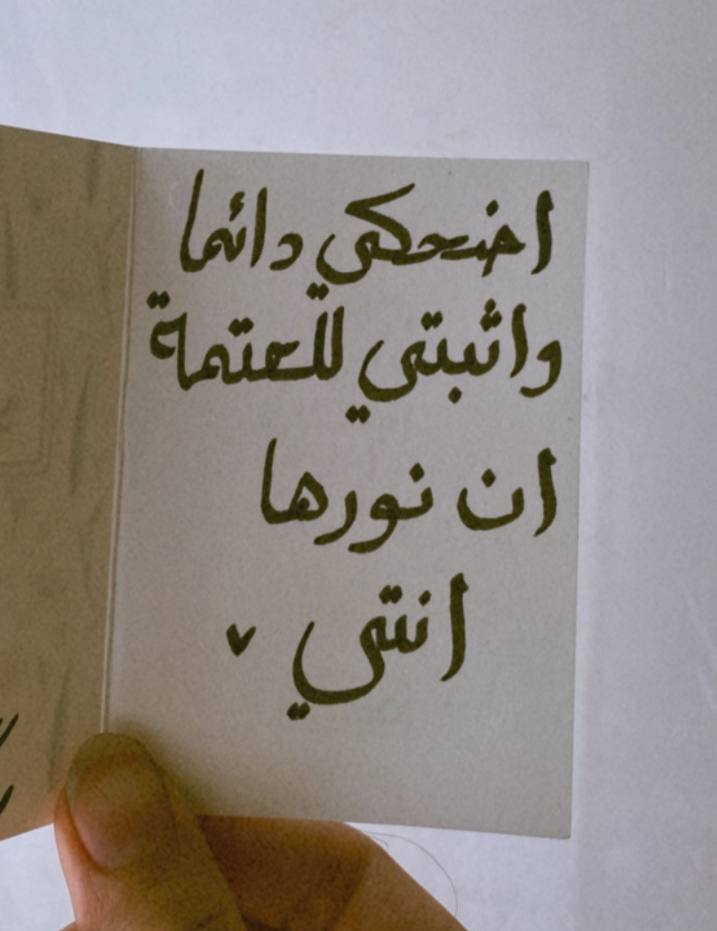 اضحكي دائما
واثبتي للعتمة
ان نورها
انتي